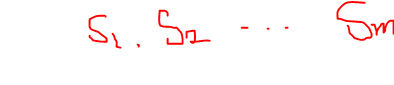 S₁. S₂ --- Sₘ